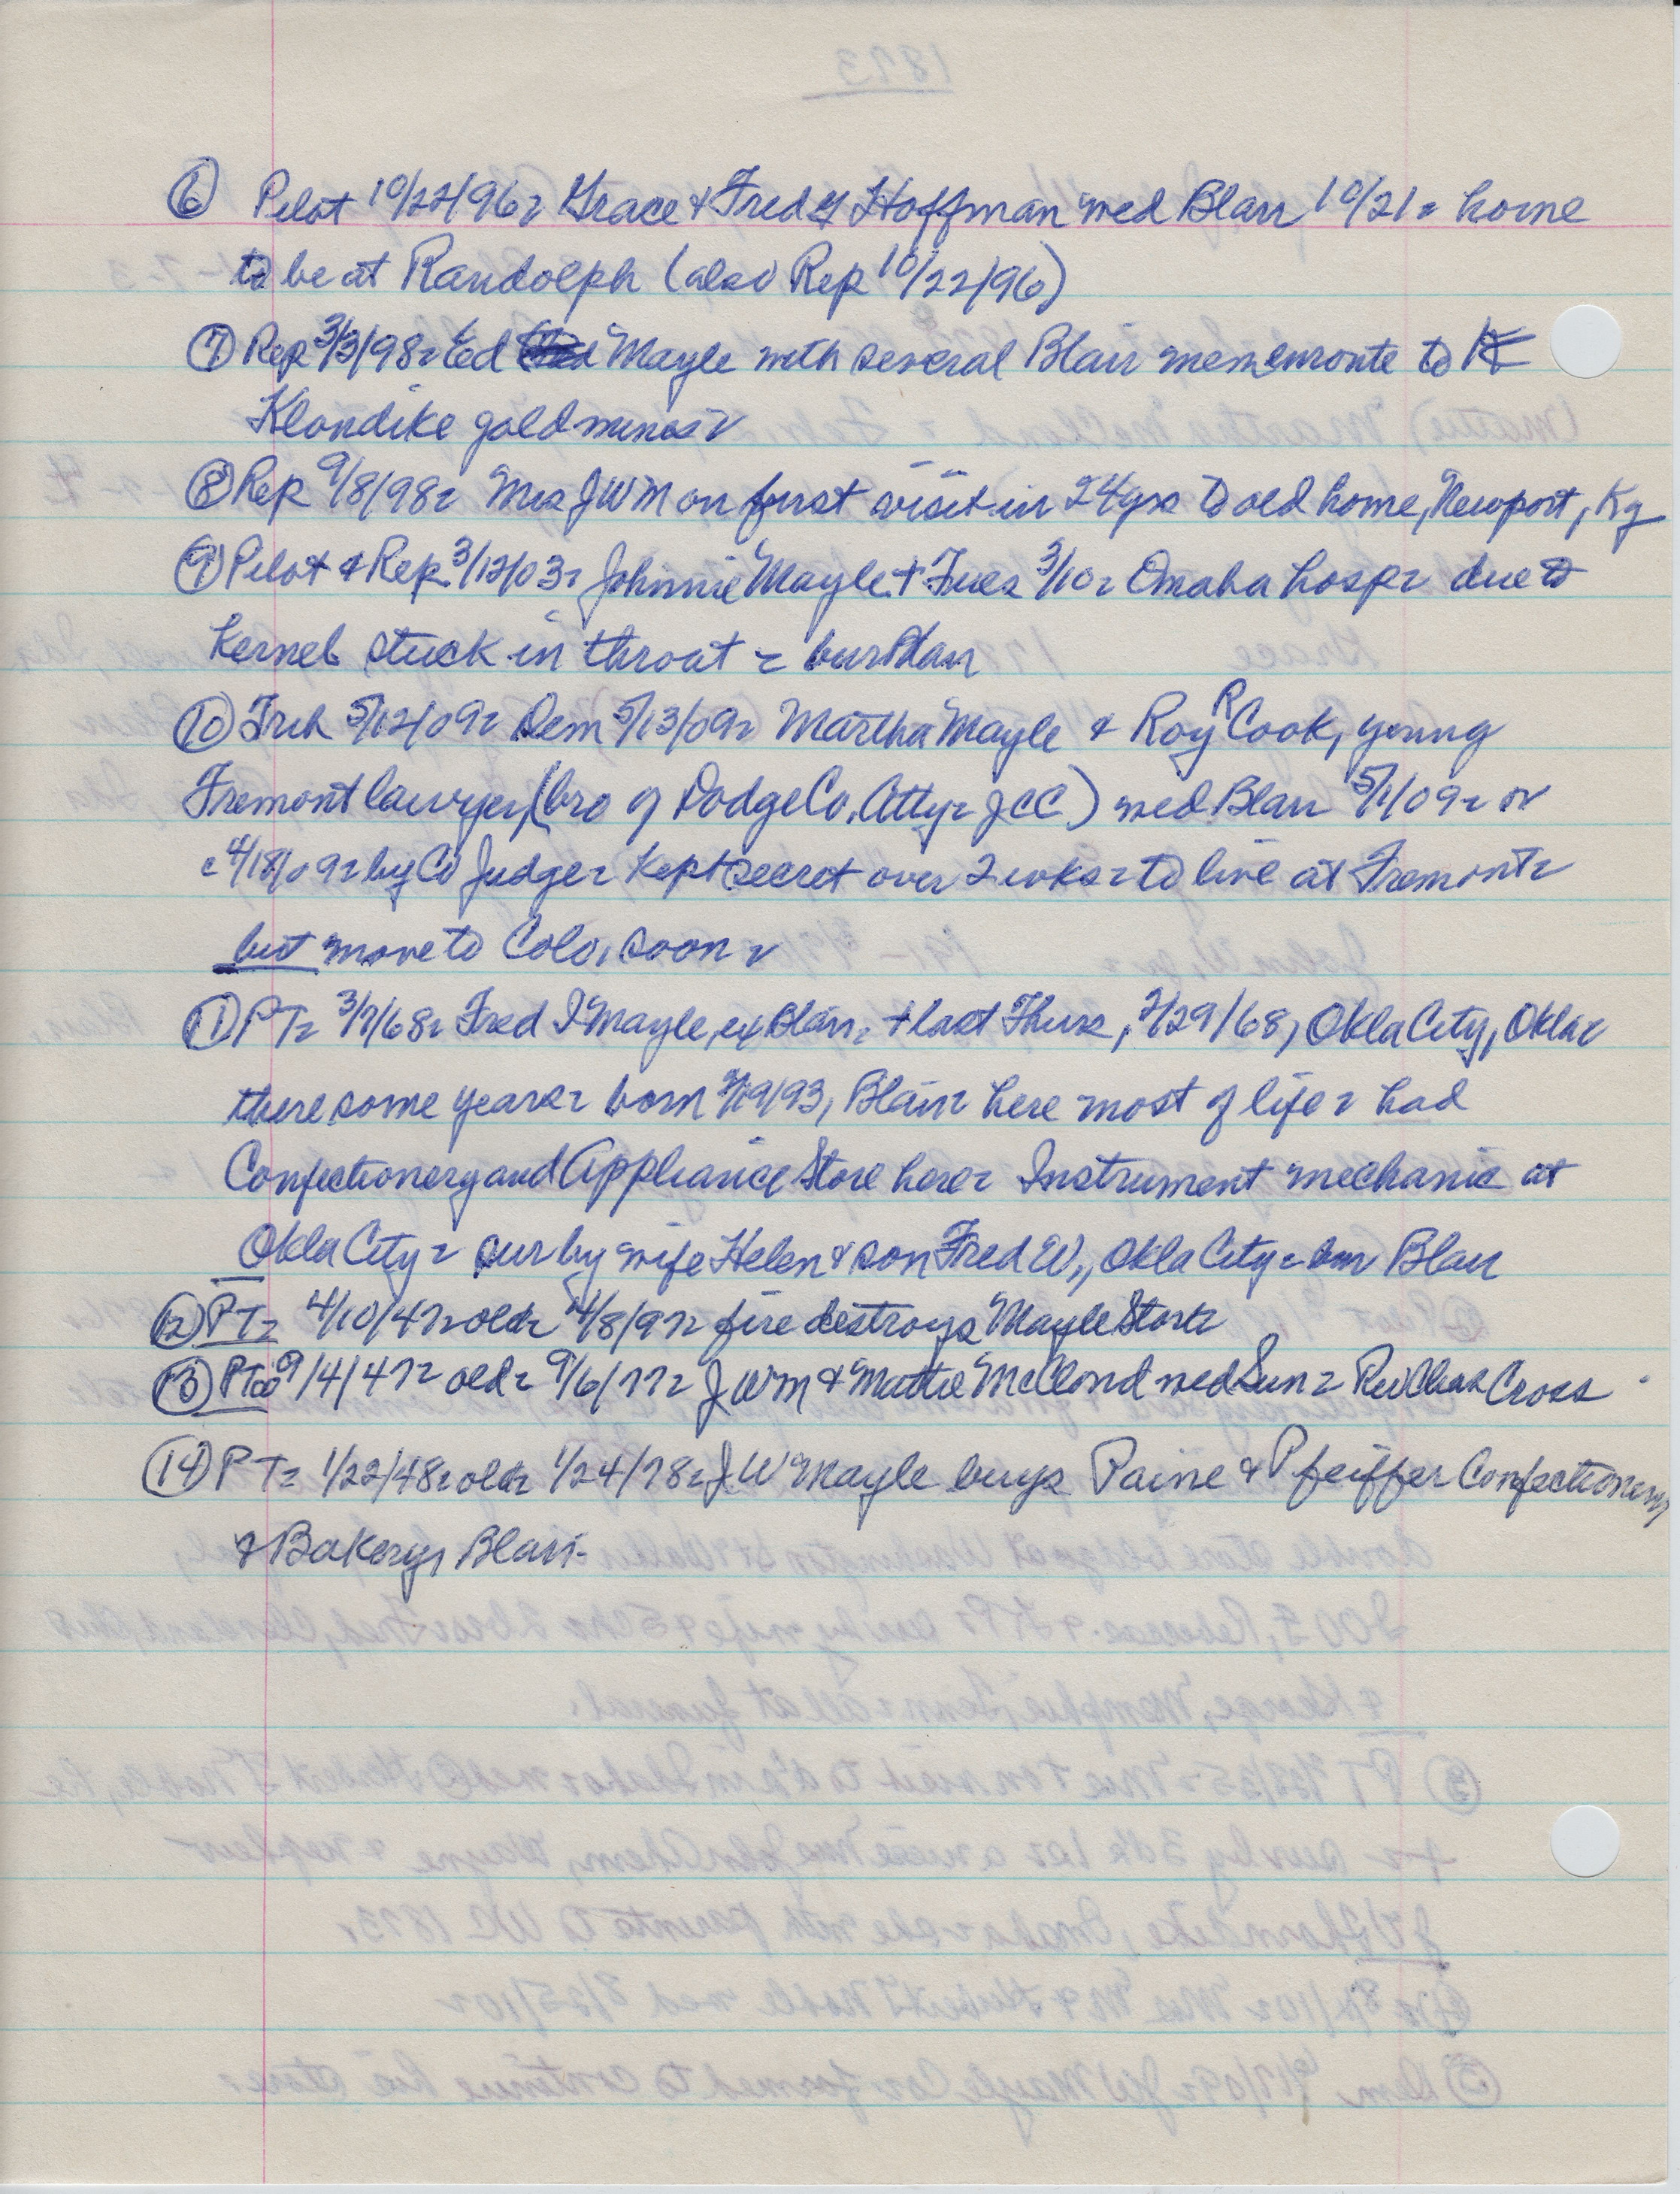 ⑥ Pilot 10/22/96 Grace & Fred Hoffman med Blair 10/21 home
to be at Randolph (also Rep 10/22/96)
⑦ Rep 3/3/98 Ed Mayle with several Blair men enroute to
Klondike gold mines
⑧ Rep 9/8/98 Mrs JWM on first visit in 24 yrs to old home, Newport, Ky
⑨ Pilot & Rep 3/12/03 Johnnie Mayle + Tues 3/10 Omaha hosp due to
Kernel stuck in throat bur Blair
⑩ Trib 5/12/09 Dem 5/13/09 Martha Mayle & Roy R Cook, young
Fremont lawyer, (bro of Dodge Co, Atty JCC) med Blair 5/1/09 or
c 4/18/09 by Co Judge Kept secret over 2 wks to live at Fremont
but move to Colo, soon
⑪ PT 3/7/68 Fred I Mayle, ex Blair, + last Thurs, 2/29/68, Okla City, Okla
there some years born 2/19/93, Blair here most of life had
Confectionery and Appliance Store here Instrument mechanic at
Okla City sur by wife Helen & son Fred W., Okla City bur Blair
⑫ PT 4/10/47 old 4/8/97 fire destroys Mayle Store
⑬ PT 9/4/47 old 9/6/77 JWM & Mattie McClond med Sun Rev Chas Cross
⑭ PT 1/22/48 old 1/24/78 J W Mayle buys Paine & Pfeiffer Confectionery
& Bakery, Blair